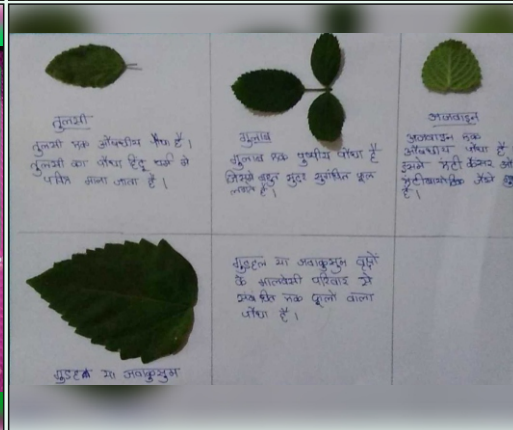 तुलसी
तुलसी एक औषधीय पौधा है।
तुलसी का पौधा हिंदू धर्म में
पवित्र माना जाता है।
गुलाब
गुलाब एक पुष्पीय पौधा है
जिसमें बहुत सुंदर सुगंधित फूल
लगते हैं।
अजवाइन
अजवाइन एक
औषधीय पौधा है।
इसमें एंटी कैंसर
एंटीबायोटिक जैसे
है।
गुड़हल या जवाकुसुम
गुड़हल या जवाकुसुम वृक्षों
के मालवेसी परिवार से
संबंधित एक फूलों वाला
पौधा है।